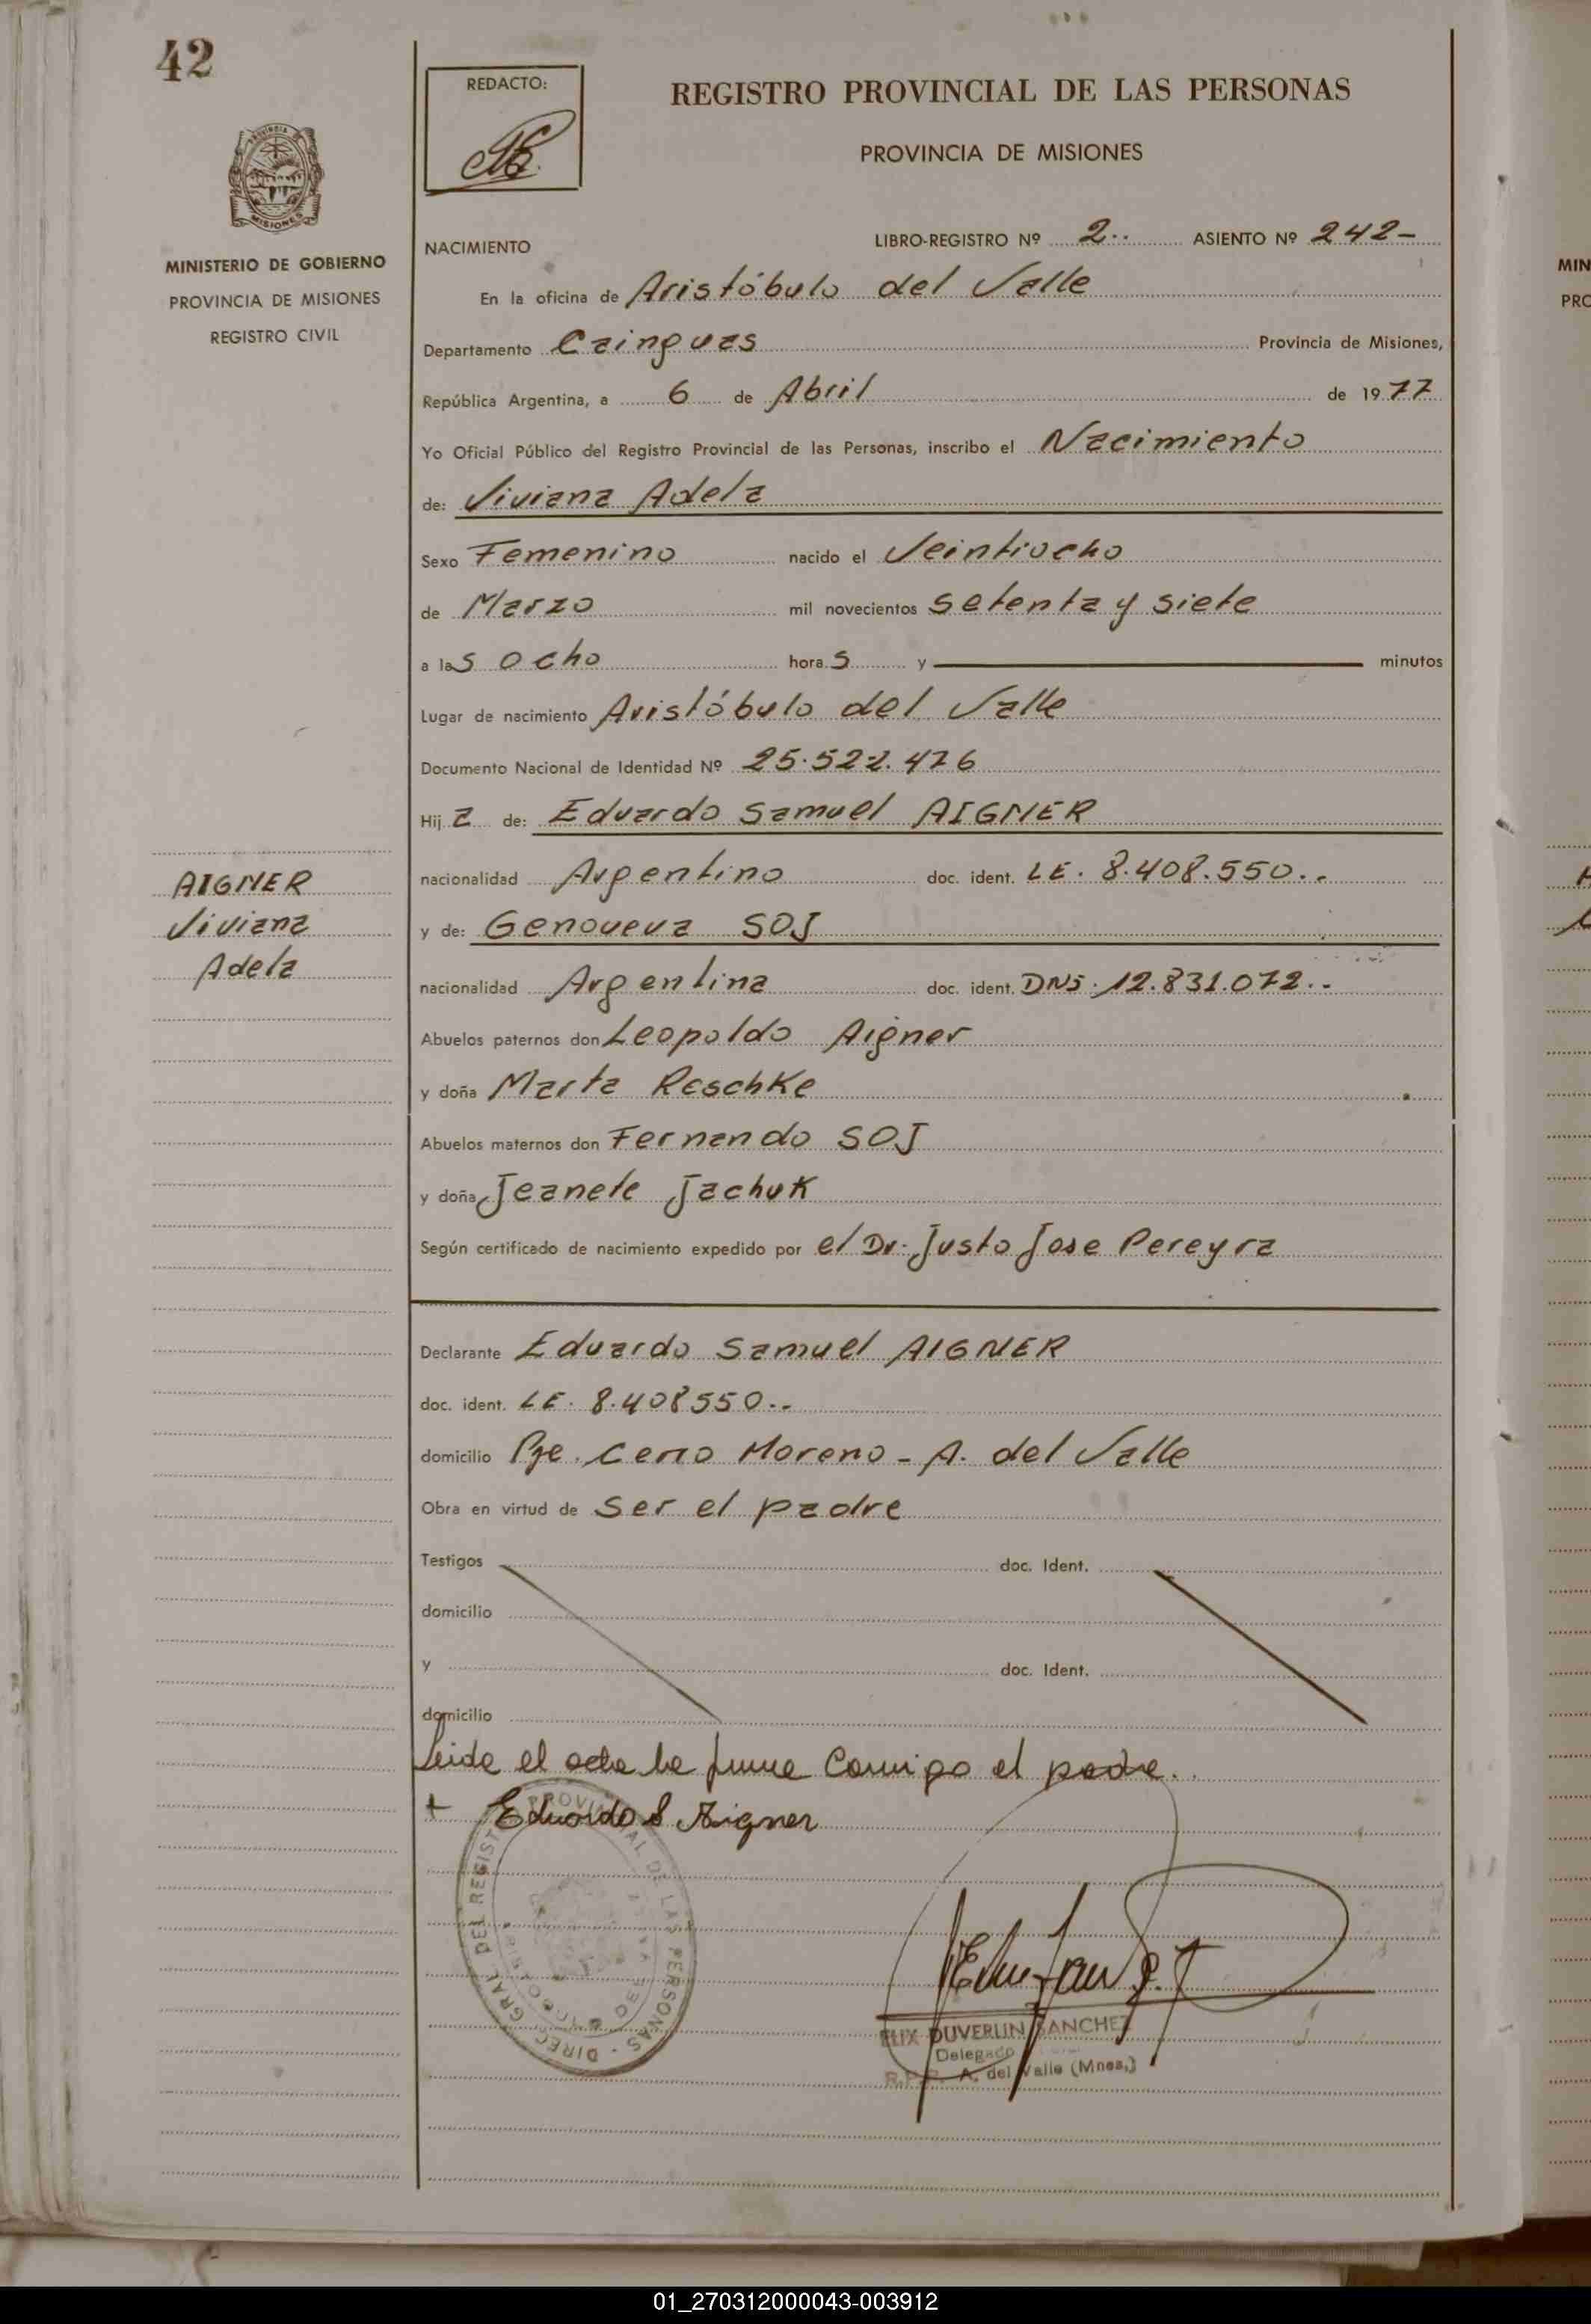 42
REDACTO:
REGISTRO PROVINCIAL DE LAS PERSONAS
PROVINCIA DE MISIONES
MISIONES
MINISTERIO DE GOBIERNO
PROVINCIA DE MISIONES
REGISTRO CIVIL
NACIMIENTO
LIBRO-REGISTRO Nº 2.. ASIENTO Nº 242-
En la oficina de Aristóbulo del Valle
Departamento Cainguas Provincia de Misiones,
República Argentina, a 6 de Abril de 1977
Yo Oficial Público del Registro Provincial de las Personas, inscribo el Nacimiento
de: Viviana Adela
Sexo Femenino nacido el Veintiocho
de Marzo mil novecientos setenta y siete
a las ocho horas y minutos
Lugar de nacimiento Aristóbulo del Valle
Documento Nacional de Identidad Nº 25.522.476
Hija de: Eduardo Samuel AIGNER
AIGNER
Viviana
Adela
nacionalidad Argentino doc. ident. LE. 8.408.550..
y de: Genoveva SOJ
nacionalidad Argentina doc. ident. DNI. 12.831.072..
Abuelos paternos don Leopoldo Aigner
y doña Marta Reschke
Abuelos maternos don Fernando SOJ
y doña Jeanete Jachuk
Según certificado de nacimiento expedido por el Dr. Justo Jose Pereyra
Declarante Eduardo Samuel AIGNER
doc. ident. LE. 8.408550..
domicilio Pje. Cerro Moreno - A. del Valle
Obra en virtud de ser el padre
Testigos doc. Ident.
domicilio
y doc. Ident.
domicilio
Leida el acta la firma conmigo el padre.
+ Eduardo S Aigner
DIREC. GRAL. DEL REGISTRO PROVINCIAL DE LAS PERSONAS
ELIX DUVERLIN SANCHEZ
Delegado
R.P.P. A. del Valle (Mnes.)
MIN
PRO
01_270312000043-003912